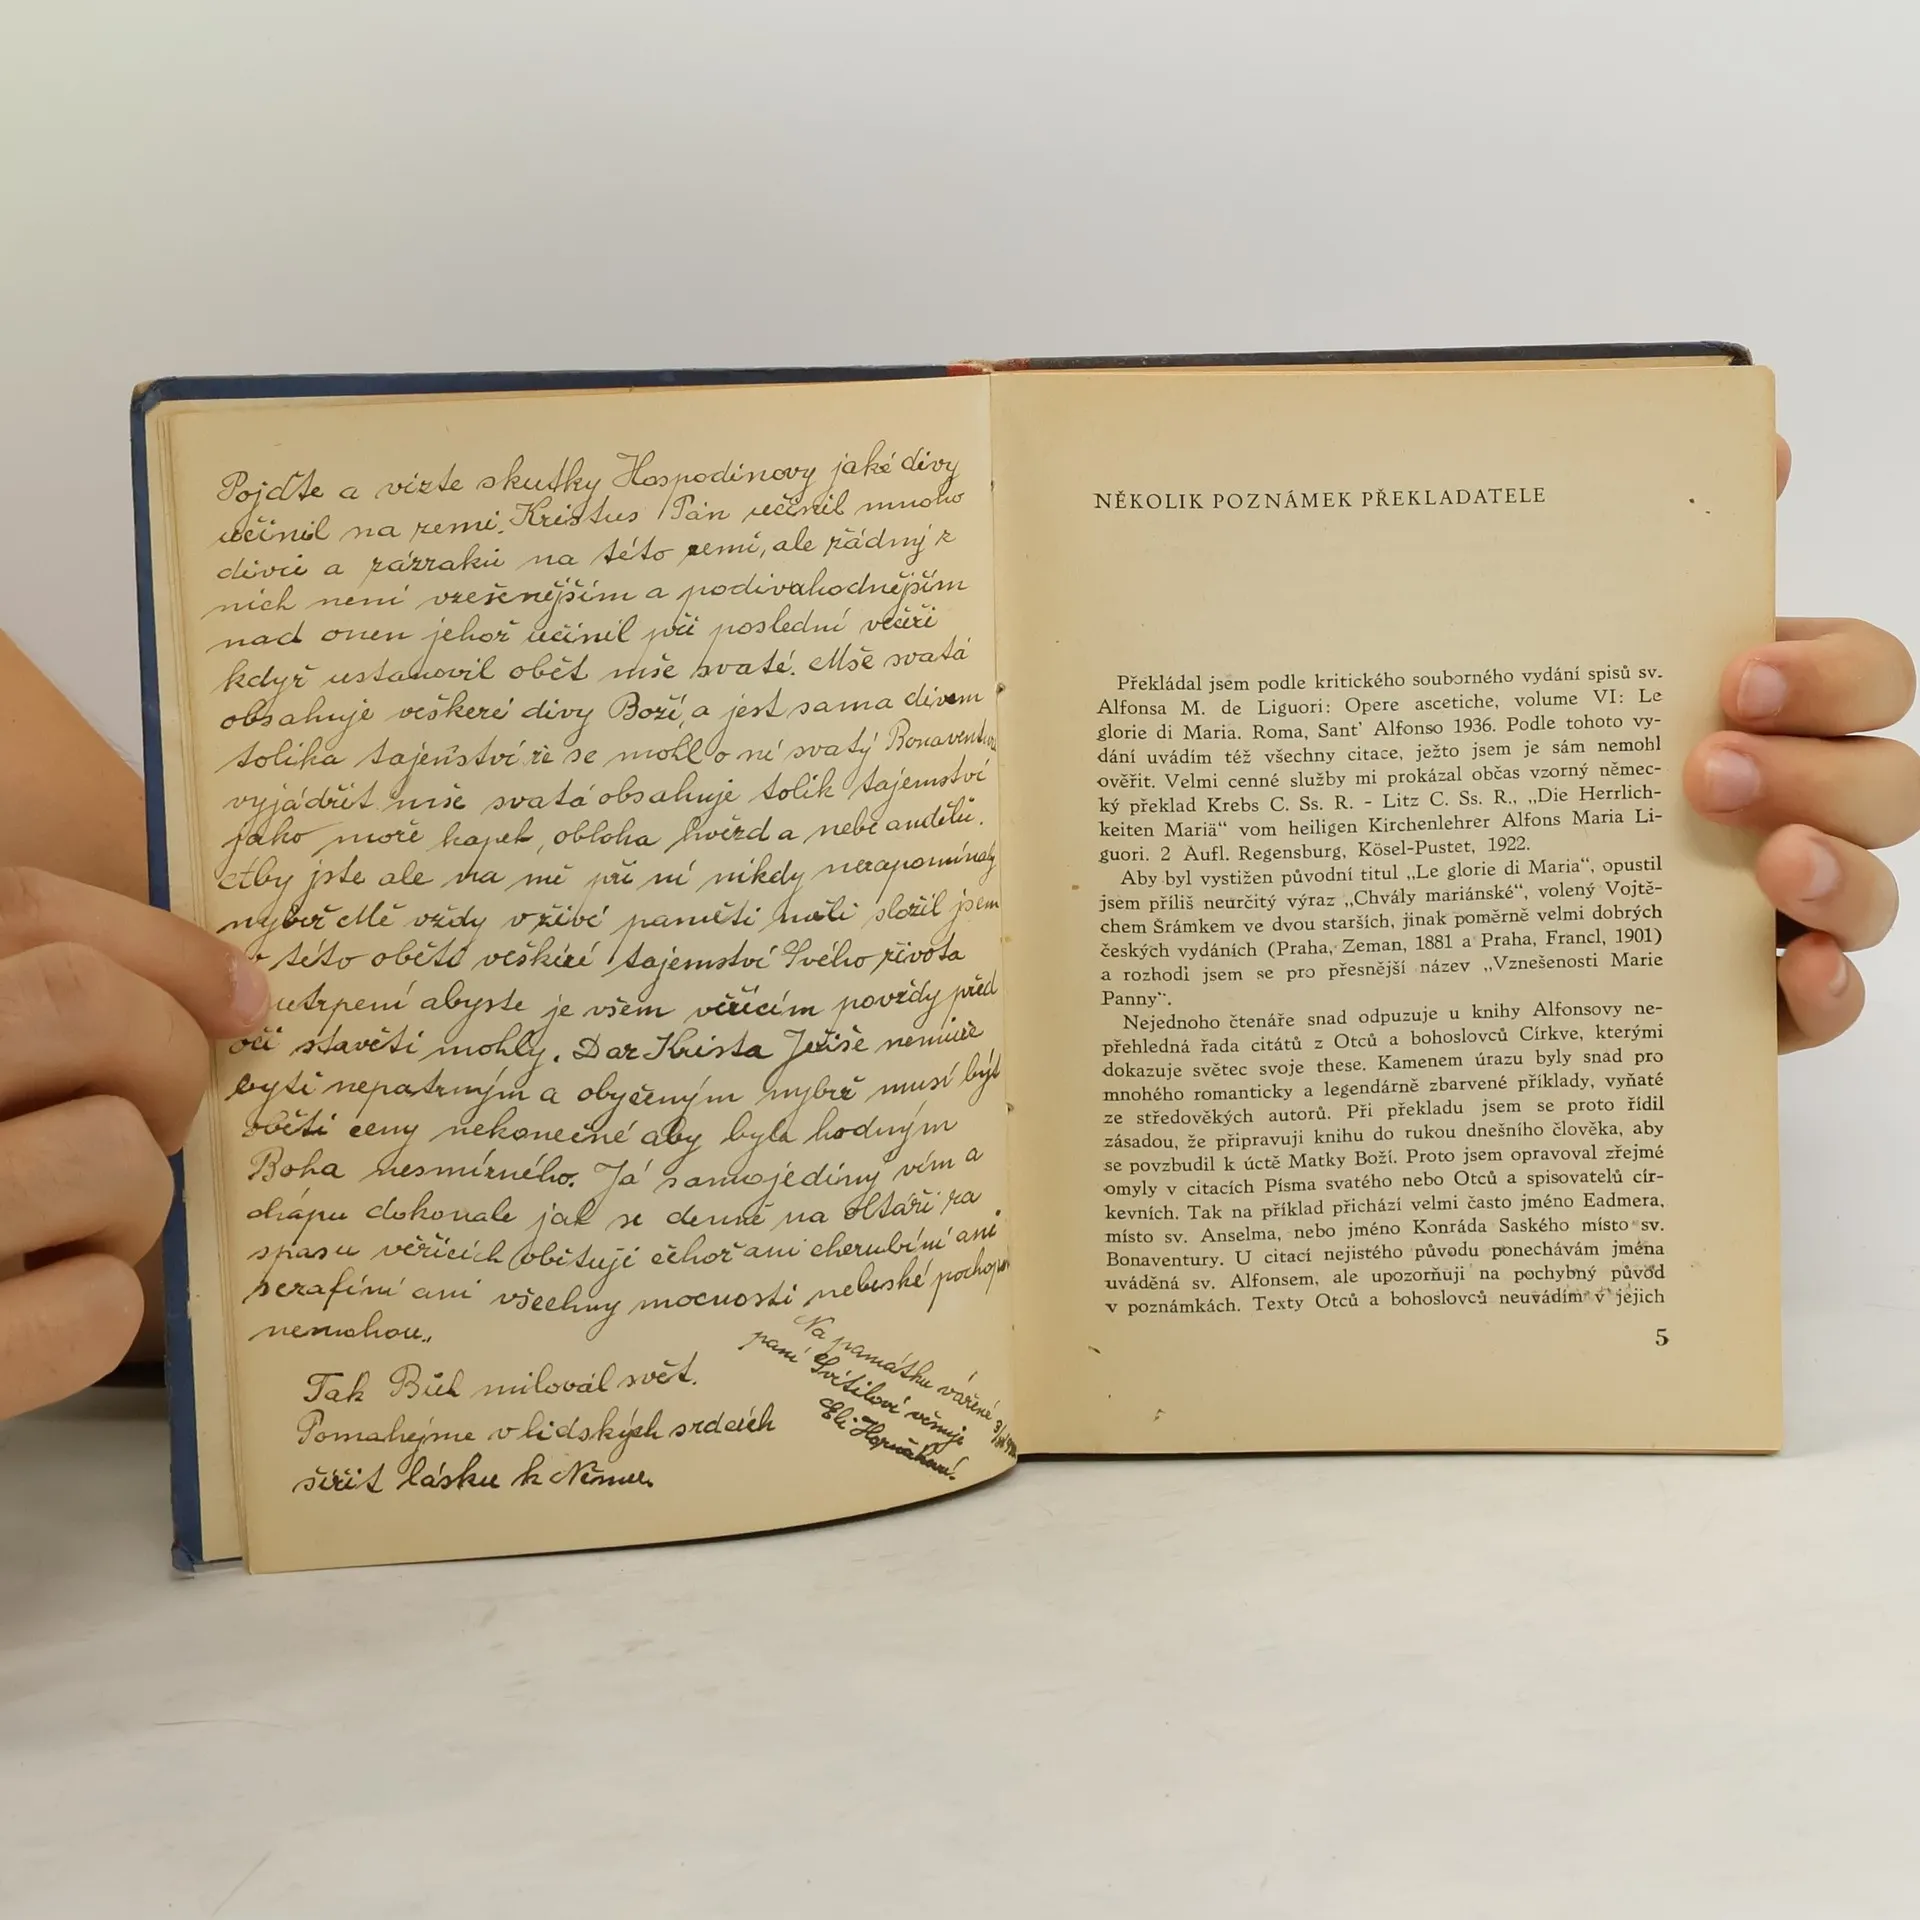 Pojďte a vizte skutky Hospodinovy jaké divy
učinil na zemi. Kristus Pán učinil mnoho
divů a zázraků na této zemi, ale žádný z
nich není vzešenějším a podivuhodnějším
nad onen jehož učinil při poslední večeři
když ustanovil obět mše svaté. Mše svatá
obsahuje veškeré divy Boží, a jest sama divem
tolika tajenství že se mohl o ní svatý Bonaventura
vyjádřit mše svatá obsahuje tolik tajemství
jako moře kapek, obloha hvězd a nebe andělů.
Aby jste ale na mě při ní nikdy nezapomínaly
nybrž Mě vždy v živé paměti měli složil jsem
v této oběti veškeré tajemství Svého života
utrpení abyste je všem věřícím povždy před
oči stavěti mohly. Dar Krista Ježíše nemůže
býti nepatrným a obyčeným nybrž musí být
oběti ceny nekonečné aby byla hodným
Boha nesmírného. Já samojediný vím a
chápu dokonale jak se denně na oltáři za
spasu věřících obětuji čehož ani cherubíni ani
serafíni ani všechny mocnosti nebeské pochopit
nemohou„
Tak Bůh miloval svět.
Pomahejme v lidských srdcích
šířit lásku k Němu.
Na památku vážené
paní Svítilové věnuje
Eli
NĚKOLIK POZNÁMEK PŘEKLADATELE
Překládal jsem podle kritického souborného vydání spisů sv.
Alfonsa M. de Liguori: Opere ascetiche, volume VI: Le
glorie di Maria. Roma, Sant' Alfonso 1936. Podle tohoto vy-
dání uvádím též všechny citace, ježto jsem je sám nemohl
ověřit. Velmi cenné služby mi prokázal občas vzorný němec-
ký překlad Krebs C. Ss. R. - Litz C. Ss. R., „Die Herrlich-
keiten Mariä“ vom heiligen Kirchenlehrer Alfons Maria Li-
guori. 2 Aufl. Regensburg, Kösel-Pustet, 1922.
Aby byl vystižen původní titul „Le glorie di Maria“, opustil
jsem příliš neurčitý výraz „Chvály mariánské“, volený Vojtě-
chem Šrámkem ve dvou starších, jinak poměrně velmi dobrých
českých vydáních (Praha, Zeman, 1881 a Praha, Francl, 1901)
a rozhodl jsem se pro přesnější název „Vznešenosti Marie
Panny“.
Nejednoho čtenáře snad odpuzuje u knihy Alfonsovy ne-
přehledná řada citátů z Otců a bohoslovců Církve, kterými
dokazuje světec svoje these. Kamenem úrazu byly snad pro
mnohého romanticky a legendárně zbarvené příklady, vyňaté
ze středověkých autorů. Při překladu jsem se proto řídil
zásadou, že připravuji knihu do rukou dnešního člověka, aby
se povzbudil k úctě Matky Boží. Proto jsem opravoval zřejmé
omyly v citacích Písma svatého nebo Otců a spisovatelů cír-
kevních. Tak na příklad přichází velmi často jméno Eadmera,
místo sv. Anselma, nebo jméno Konráda Saského místo sv.
Bonaventury. U citací nejistého původu ponechávám jména
uváděná sv. Alfonsem, ale upozorňuji na pochybný původ
v poznámkách. Texty Otců a bohoslovců neuvádím v jejich
5